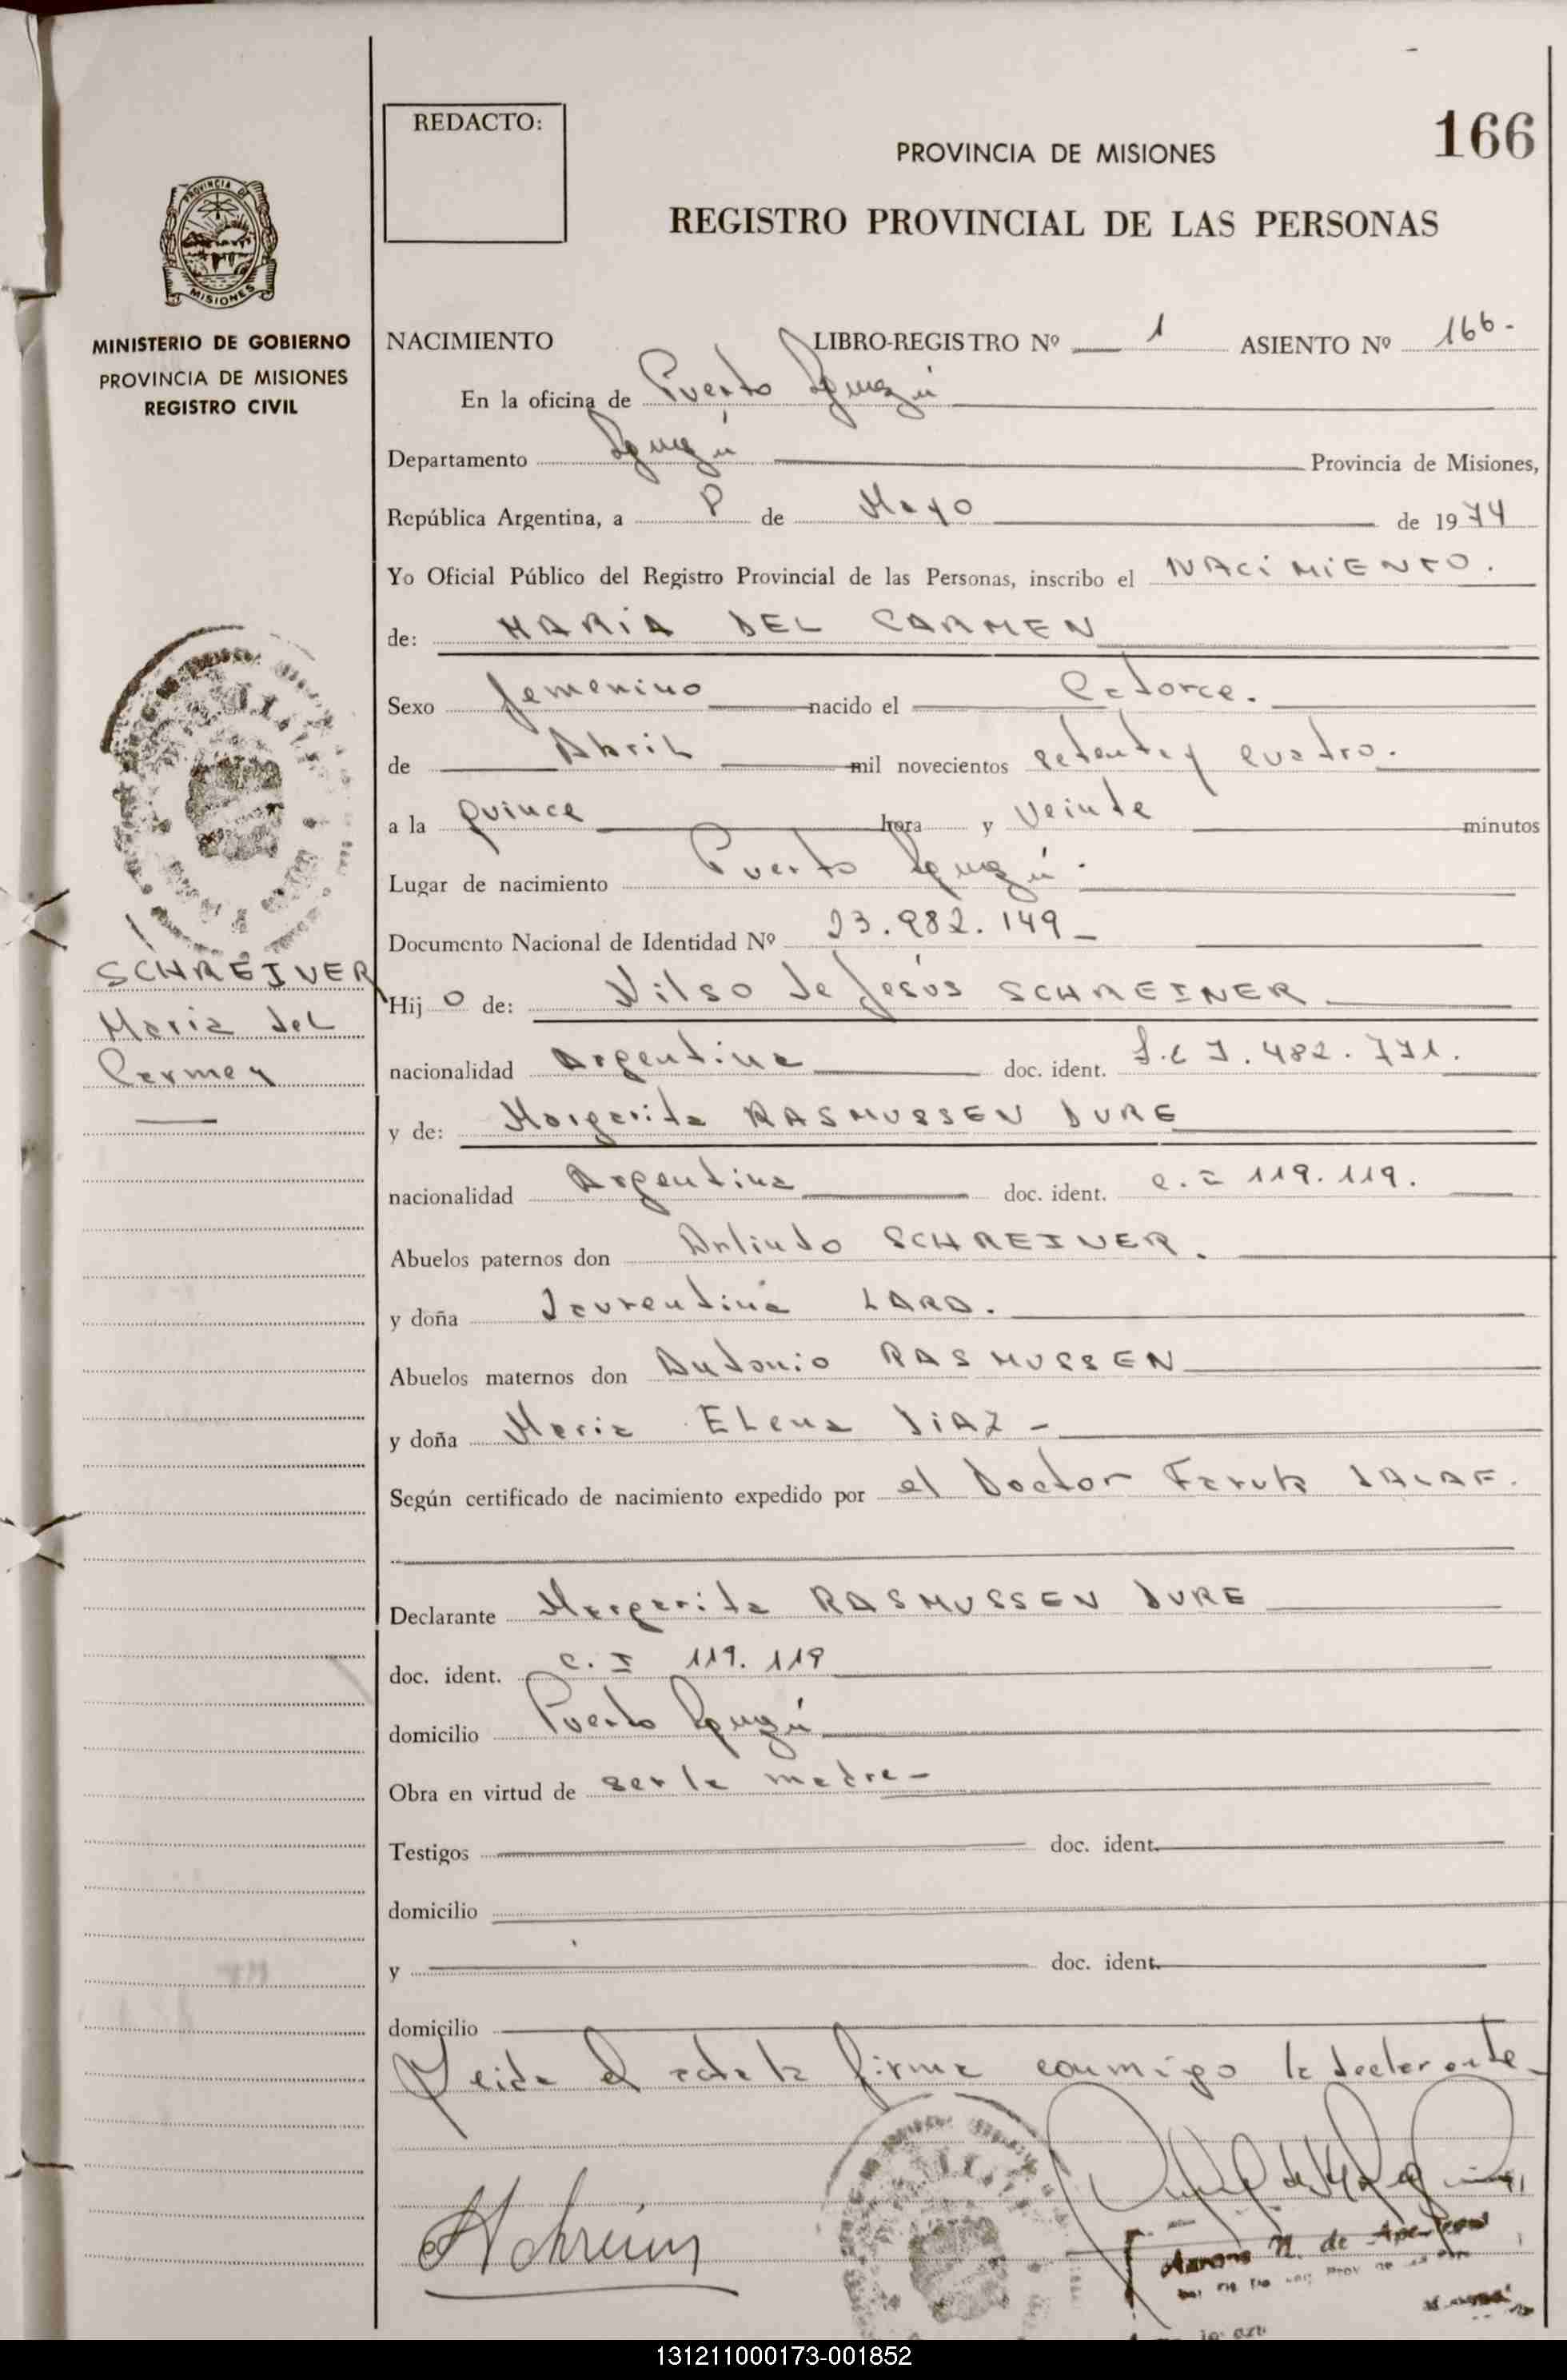 REDACTO:
166
PROVINCIA DE MISIONES
REGISTRO PROVINCIAL DE LAS PERSONAS
PROVINCIA DE
MISIONES
MINISTERIO DE GOBIERNO
PROVINCIA DE MISIONES
REGISTRO CIVIL
SCHREINER
Maria del
Carmen
NACIMIENTO LIBRO-REGISTRO Nº 1 ASIENTO Nº 166-
En la oficina de Puerto Iguazú
Departamento Iguazú Provincia de Misiones,
República Argentina, a 8 de Mayo de 1974
Yo Oficial Público del Registro Provincial de las Personas, inscribo el NACIMIENTO.
de: MARÍA DEL CARMEN
Sexo femenino nacido el Catorce.
de Abril mil novecientos setenta y cuatro.
a la quince hora y veinte minutos
Lugar de nacimiento Puerto Iguazú.
Documento Nacional de Identidad Nº 23.982.149-
Hij o de: Nilso de Jesús SCHREINER
nacionalidad Argentina doc. ident. 7.482.771.
y de: Margarita RASMUSSEN DURE
nacionalidad Argentina doc. ident. C. I 119.119.
Abuelos paternos don Arlindo SCHREINER.
y doña Laurentina LARA.
Abuelos maternos don Antonio RASMUSSEN
y doña Maria Elena DIAZ-
Según certificado de nacimiento expedido por el Doctor Faruk JALAF.
Declarante Margarita RASMUSSEN DURE
doc. ident. C. I 119.119
domicilio Puerto Iguazú
Obra en virtud de ser la madre-
Testigos doc. ident.
domicilio
y doc. ident.
domicilio
Leida el acta la firma conmigo la declarante-
131211000173-001852